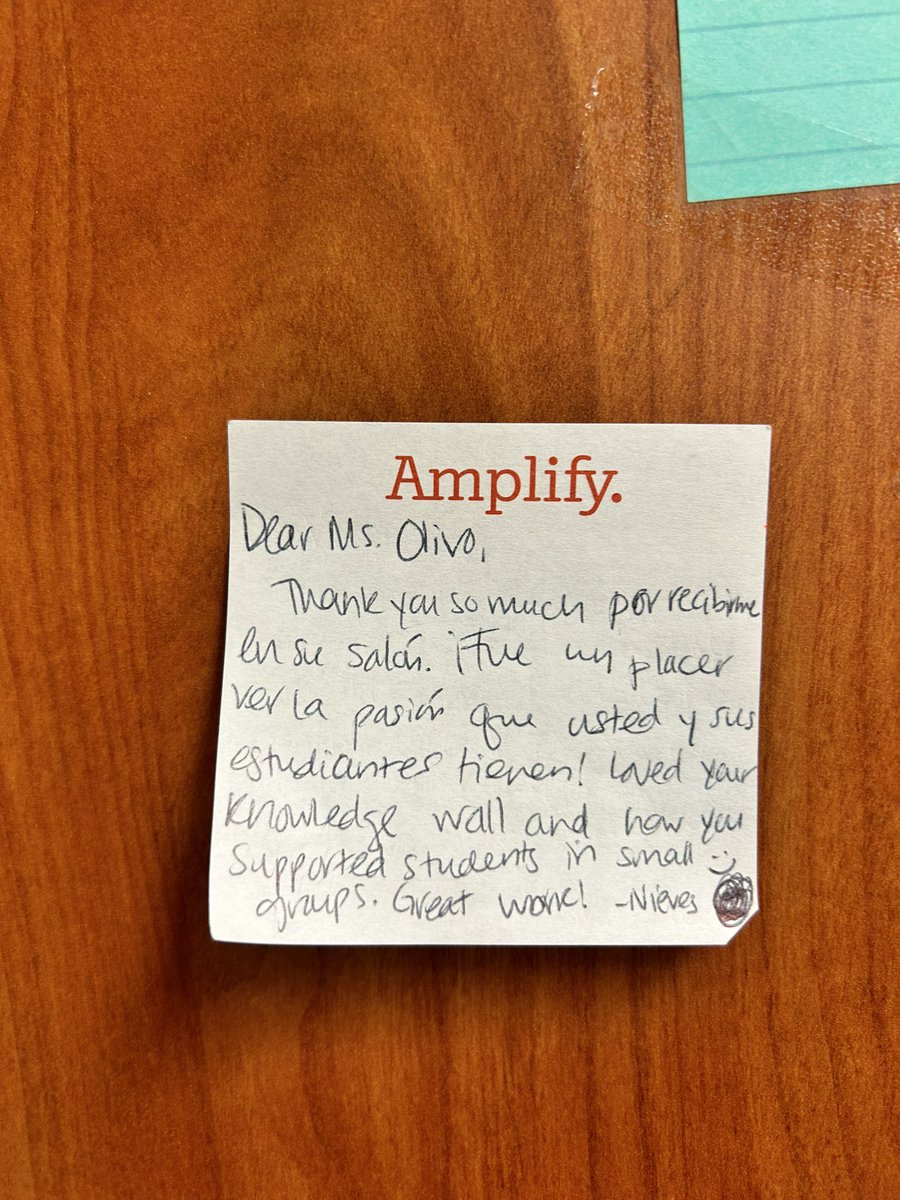 Amplify.
Dear Ms. Olivo,
Thank you so much por recibirme
en su salón. ¡Fue un placer
ver la pasión que usted y sus
estudiantes tienen! Loved your
knowledge wall and how you
supported students in small :)
groups. Great work! -Nieves